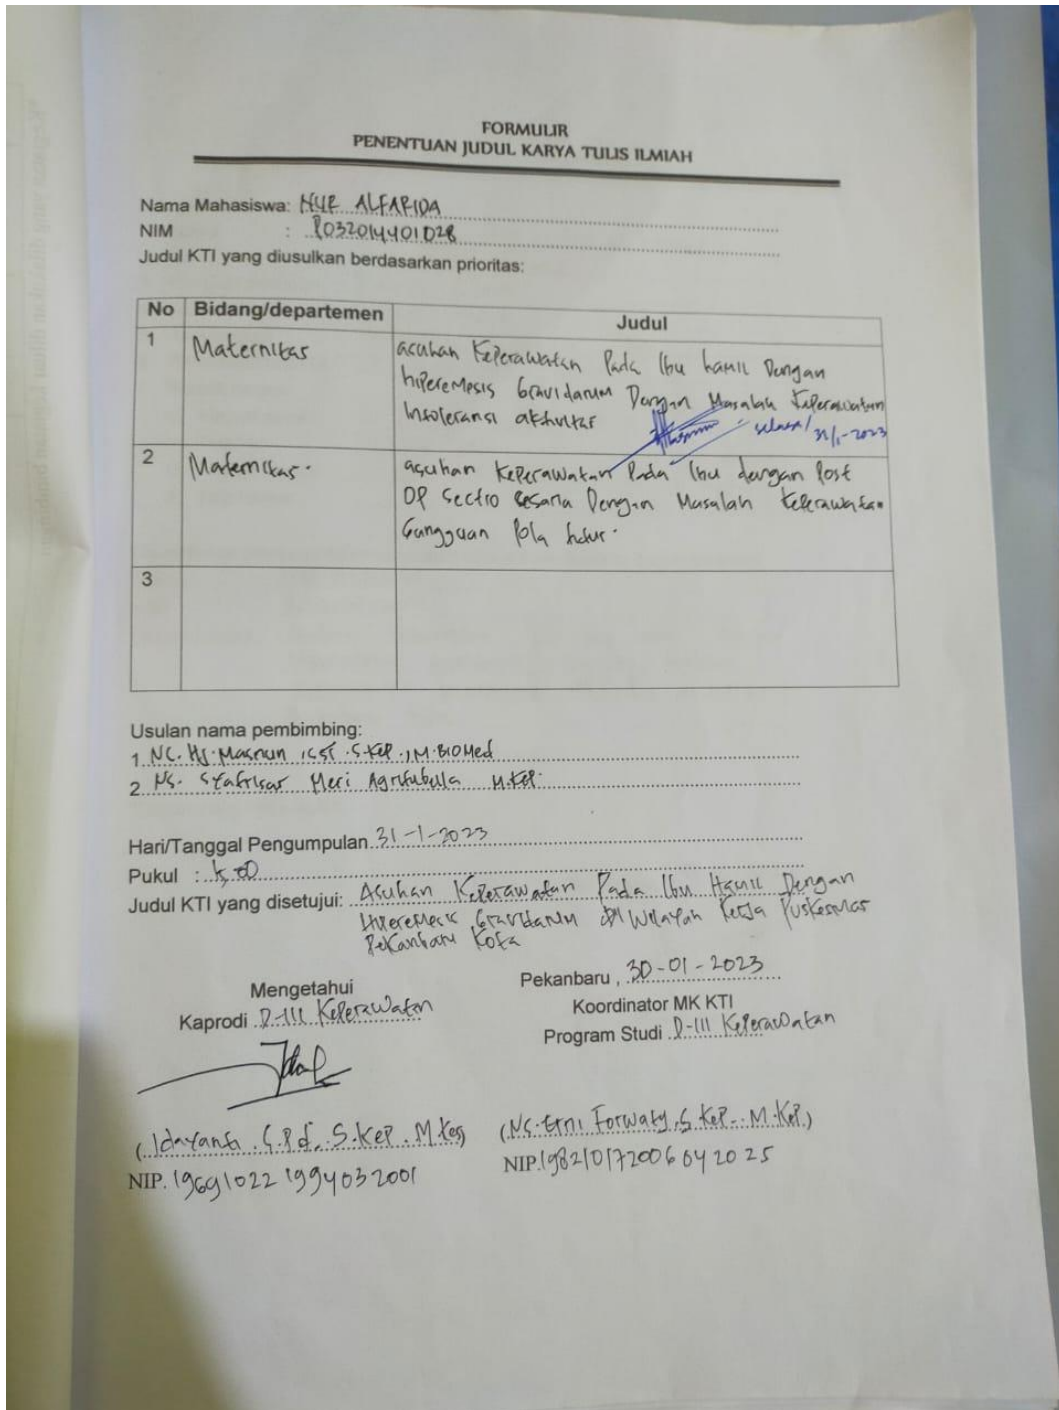 FORMULIR
PENENTUAN JUDUL KARYA TULIS ILMIAH
Nama Mahasiswa: NUR ALFARIDA
NIM : P032014401028
Judul KTI yang diusulkan berdasarkan prioritas:
No Bidang/departemen Judul
1 Maternitas asuhan Keperawatan Pada Ibu hamil Dengan
hiperemesis Gravidarum Dengan Masalah Keperawatan
Insoleransi aktivitas
selasa/ 31/1-2023
2 Maternitas. asuhan Keperawatan Pada Ibu dengan Post
OP Sectio sesaria Dengan Masalah Keperawatan
Gangguan Pola tidur.
3
Usulan nama pembimbing:
1. NS. Hj. Masnun, S.Kep., M.BIOMed
2. NS. Syafrisar Meri Agritubella M.Kep.
Hari/Tanggal Pengumpulan 31-1-2023
Pukul :
Judul KTI yang disetujui: Asuhan Keperawatan Pada Ibu Hamil Dengan
Hiperemesis Gravidarum di Wilayah Kerja Puskesmas
Pekanbaru Kota
Mengetahui
Kaprodi D-III Keperawatan
Pekanbaru , 30-01-2023
Koordinator MK KTI
Program Studi D-III Keperawatan
(Idayanti, S.Pd, S.Kep, M.Kes)
NIP. 196910221994032001
(Ns. Erni Forwaty, S.Kep., M.Kep.)
NIP.198210172006042025